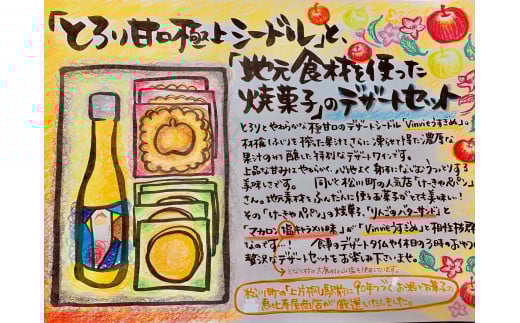 「とろり甘口極上シードル」と、
「地元食材を使った
焼菓子」のデザートセット
とろりとやわらかな極甘口のデザートシードル「Vinvieうすきめ」。
搾った果汁をさらに凍らせて得た濃厚な
果汁のみで醸した特別なデザートワインです。
上品な甘みにやわらかく、心地よく
美味しさです。 同じく松川町の人気店「けーきやぺパン」
さん。地元素材をふんだんに使うお菓子がとても美味しい!
その「けーきやぺパン」の焼菓子、「リンゴのバターサンド」と
「マカロン塩キャラメル味」が「Vinvieうすきめ」と相性抜群
なのです…! 食事のデザートタイムや休日の3時のおやつに
贅沢なデザートセットをお楽しみ下さいませ。
松川町の「上片桐駅前に90年つづくお酒とお菓子の
恵比寿屋商店が厳選いたしました。